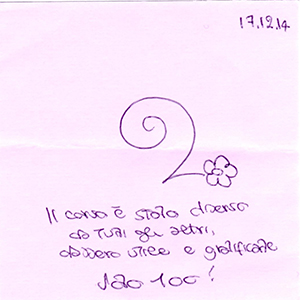 17.12.14
Il corso è stato diverso
da tutti gli altri,
davvero utile e gratificante
100!